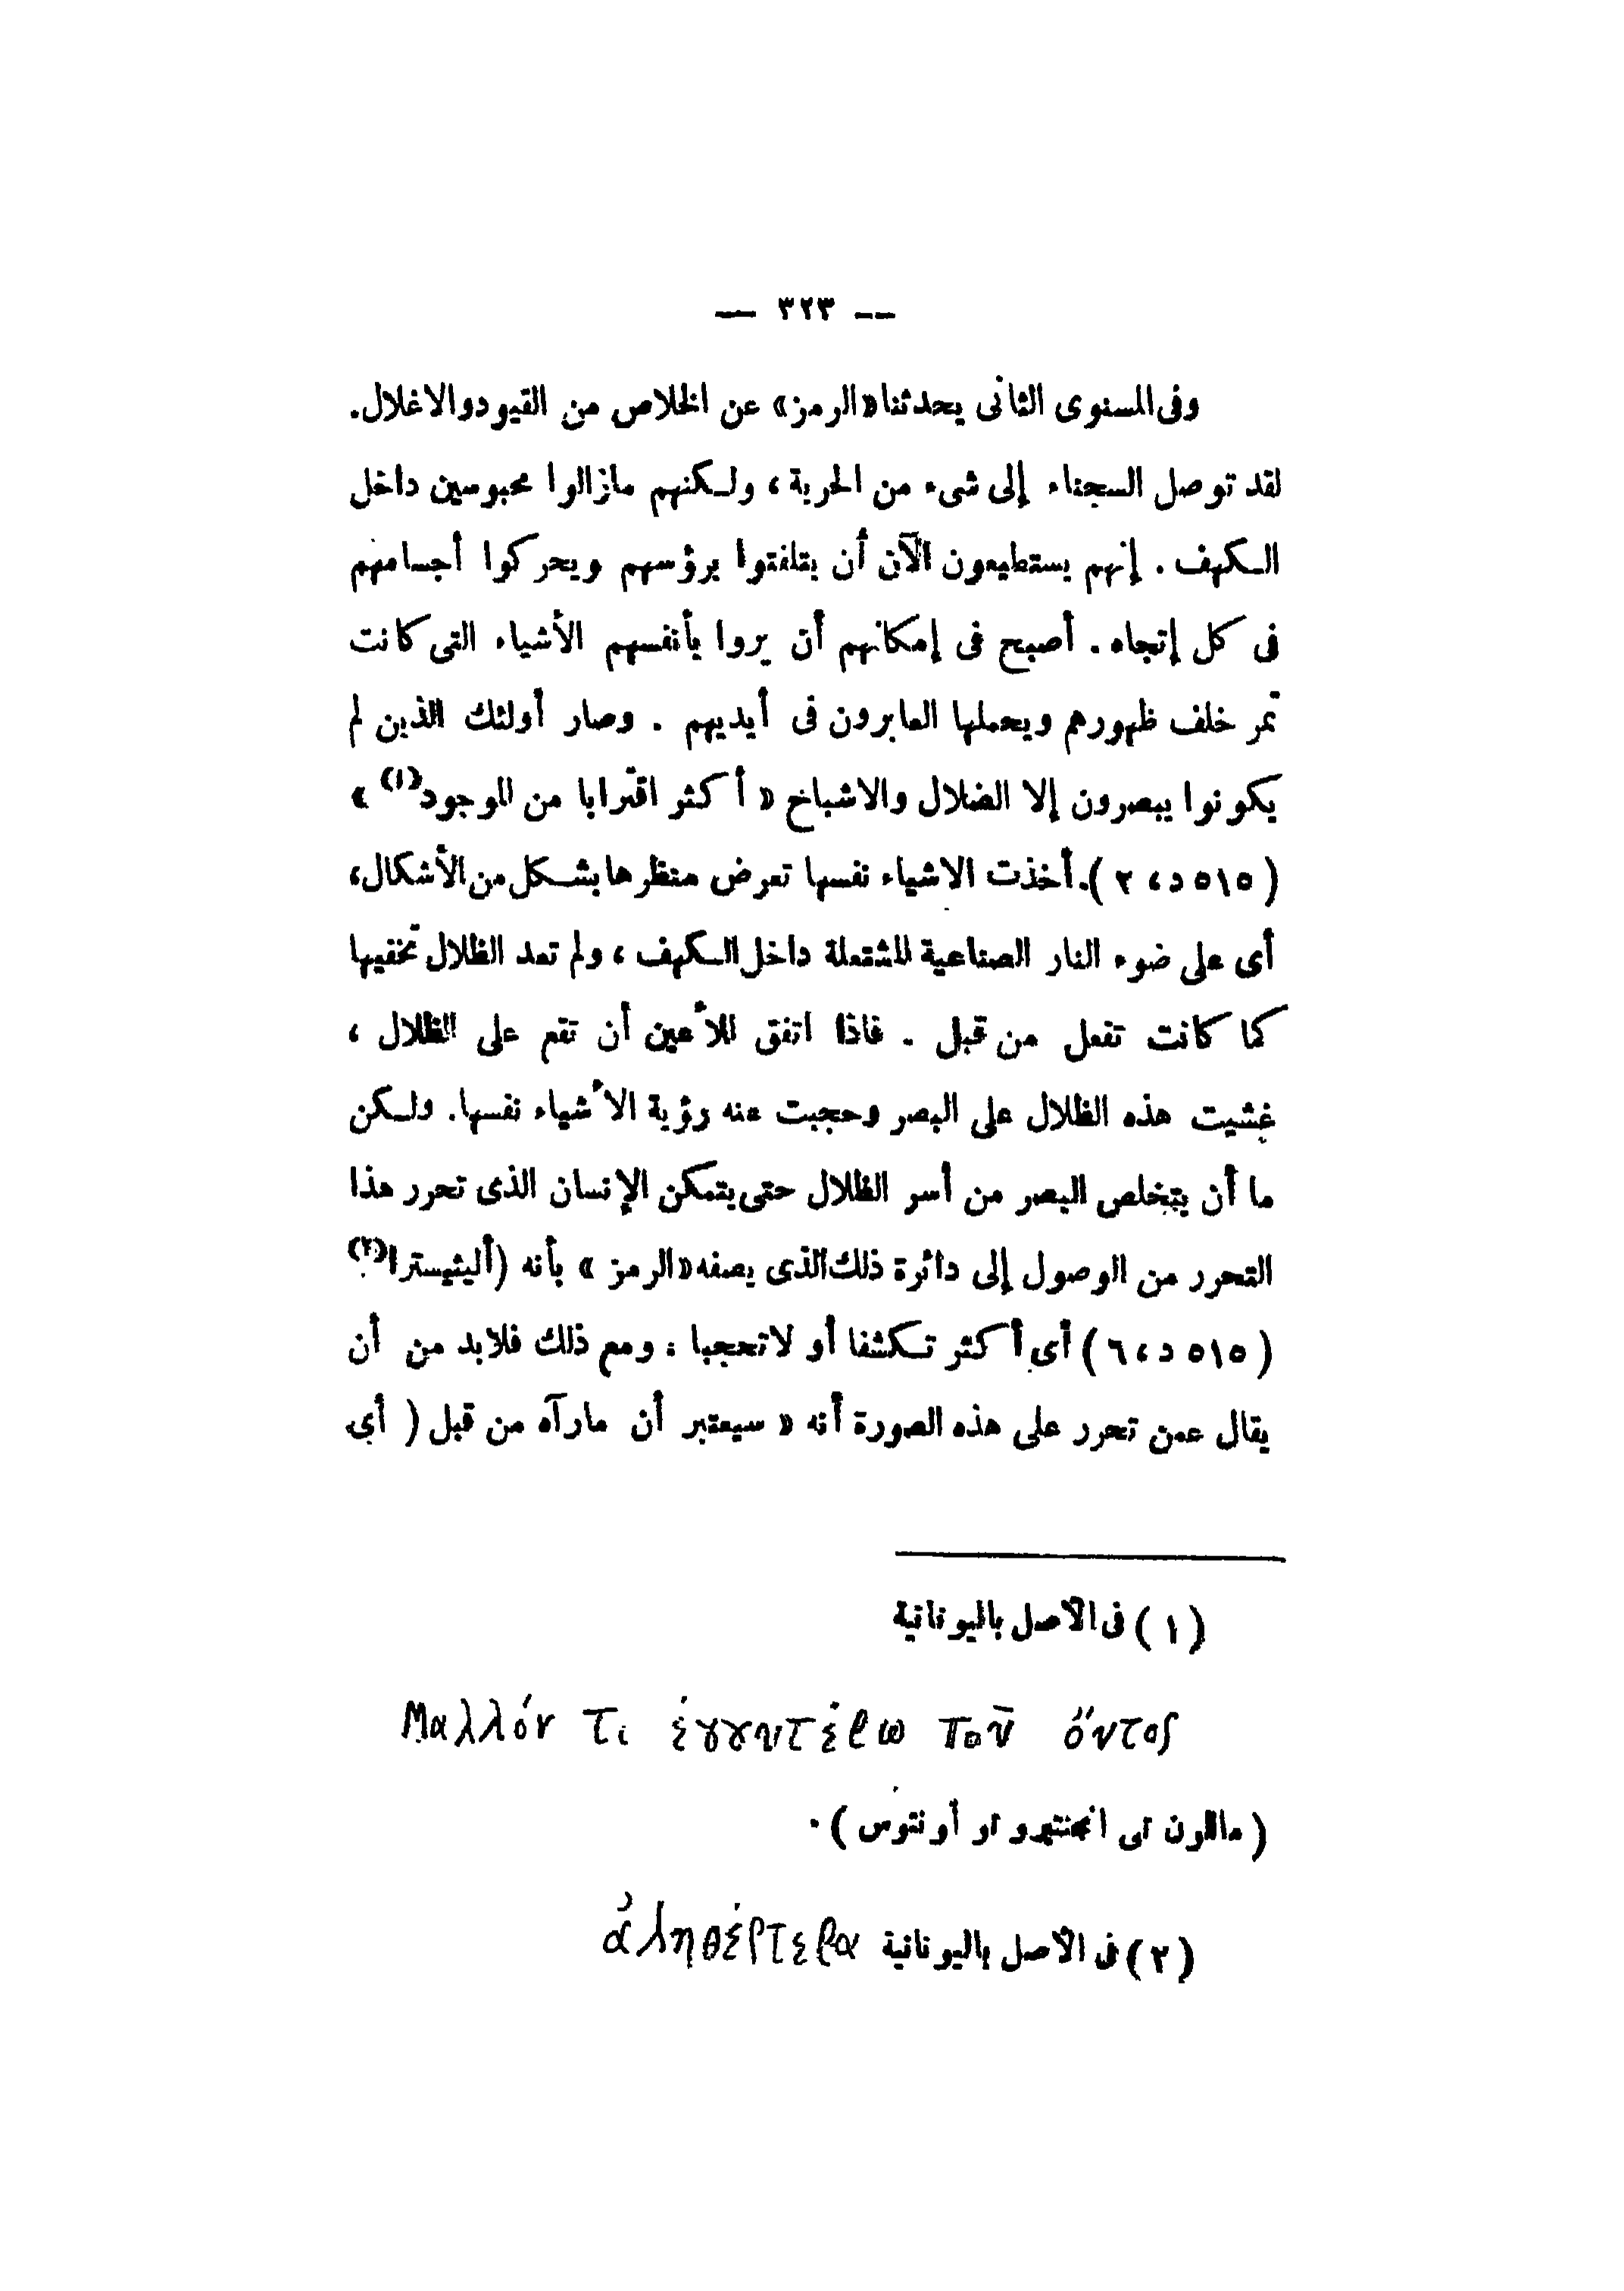 — ٣٢٣ —
وفى المستوى الثانى يحدثنا «الرمز» عن الخلاص من القيود والاغلال.
لقد توصل السجناء إلى شىء من الحرية ، ولكنهم مازالوا محبوسين داخل
الكهف . إنهم يستطيعون الآن أن يتلفتوا برؤسهم ويحركوا أجسامهم
فى كل إتجاه . أصبح فى إمكانهم أن يروا بأنفسهم الأشياء التى كانت
تمر خلف ظهورهم ويحملها العابرون فى أيديهم . وصار أولئك الذين لم
يكونوا يبصرون إلا الضلال والاشباخ « أكثر اقترابا من الموجود(١) »
( ٥١٥ د، ٢ ). أخذت الاشياء نفسها تعرض منظرها بشكل من الأشكال،
أى على ضوء النار الصناعية المشتعلة داخل الكهف ، ولم تعد الظلال تخفيها
كما كانت تفعل من قبل . فاذا اتفق للأعين أن تقع على الظلال ،
غشيت هذه الظلال على البصر وحجبت عنه رؤية الأشياء نفسها. ولكن
ما أن يتخلص البصر من أسر الظلال حتى يتمكن الإنسان الذى تحرر هذا
التحرر من الوصول إلى دائرة ذلك الذى يصفه «الرمز » بأنه (أليثيسترا(٢)
( ٥١٥ د، ٦ ) أى أكثر تكشفا أو لاتحجبا : ومع ذلك فلابد من أن
يقال عمن تحرر على هذه الصورة أنه « سيعتبر أن مارآه من قبل ( أى
( ١ ) فى الأصل باليونانية
Μαλλόν τι ἐγγυτέρω τοῦ ὄντος
( ماللون تى انجنتيرو تو أونتوس ) .
( ٢ ) فى الأصل باليونانية ἀληθέστερα